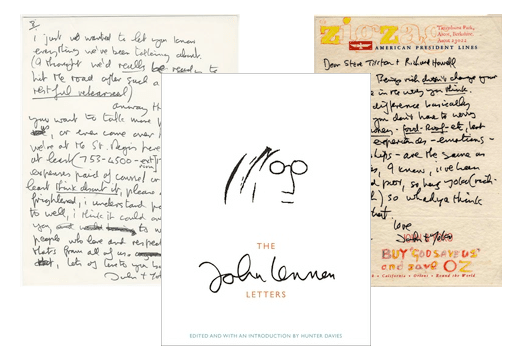 I just wanted to let you know
everything we've been talking about.
(I thought we'd really be ready to
hit the road after such a
restful rehearsal)
Anyway
you want to talk more
or even come over
we're at the St. Regis here
at least (753-4500 - ext
expenses paid of course! or
least think about it, please
frightened, i understand
to well, i think it could
yoy, and to
people who love and respect
that's from all of us
lots of love to you
John + Yoko
zigzag
AMERICAN PRESIDENT LINES
Dear Steve Tilston + Richard Howell
Being rich doesn't change your
in the way you think.
difference basically
you don't have to worry
money - food - roof - etc, but
experiences - emotions -
ships - are the same as
I know, i've been
poor, so has yoko (rich-
) so whadya think
love
John + Yoko
BUY 'GOD SAVE US'
and save OZ
California • Orient • Round the World
THE
John Lennon
LETTERS
EDITED AND WITH AN INTRODUCTION BY HUNTER DAVIES